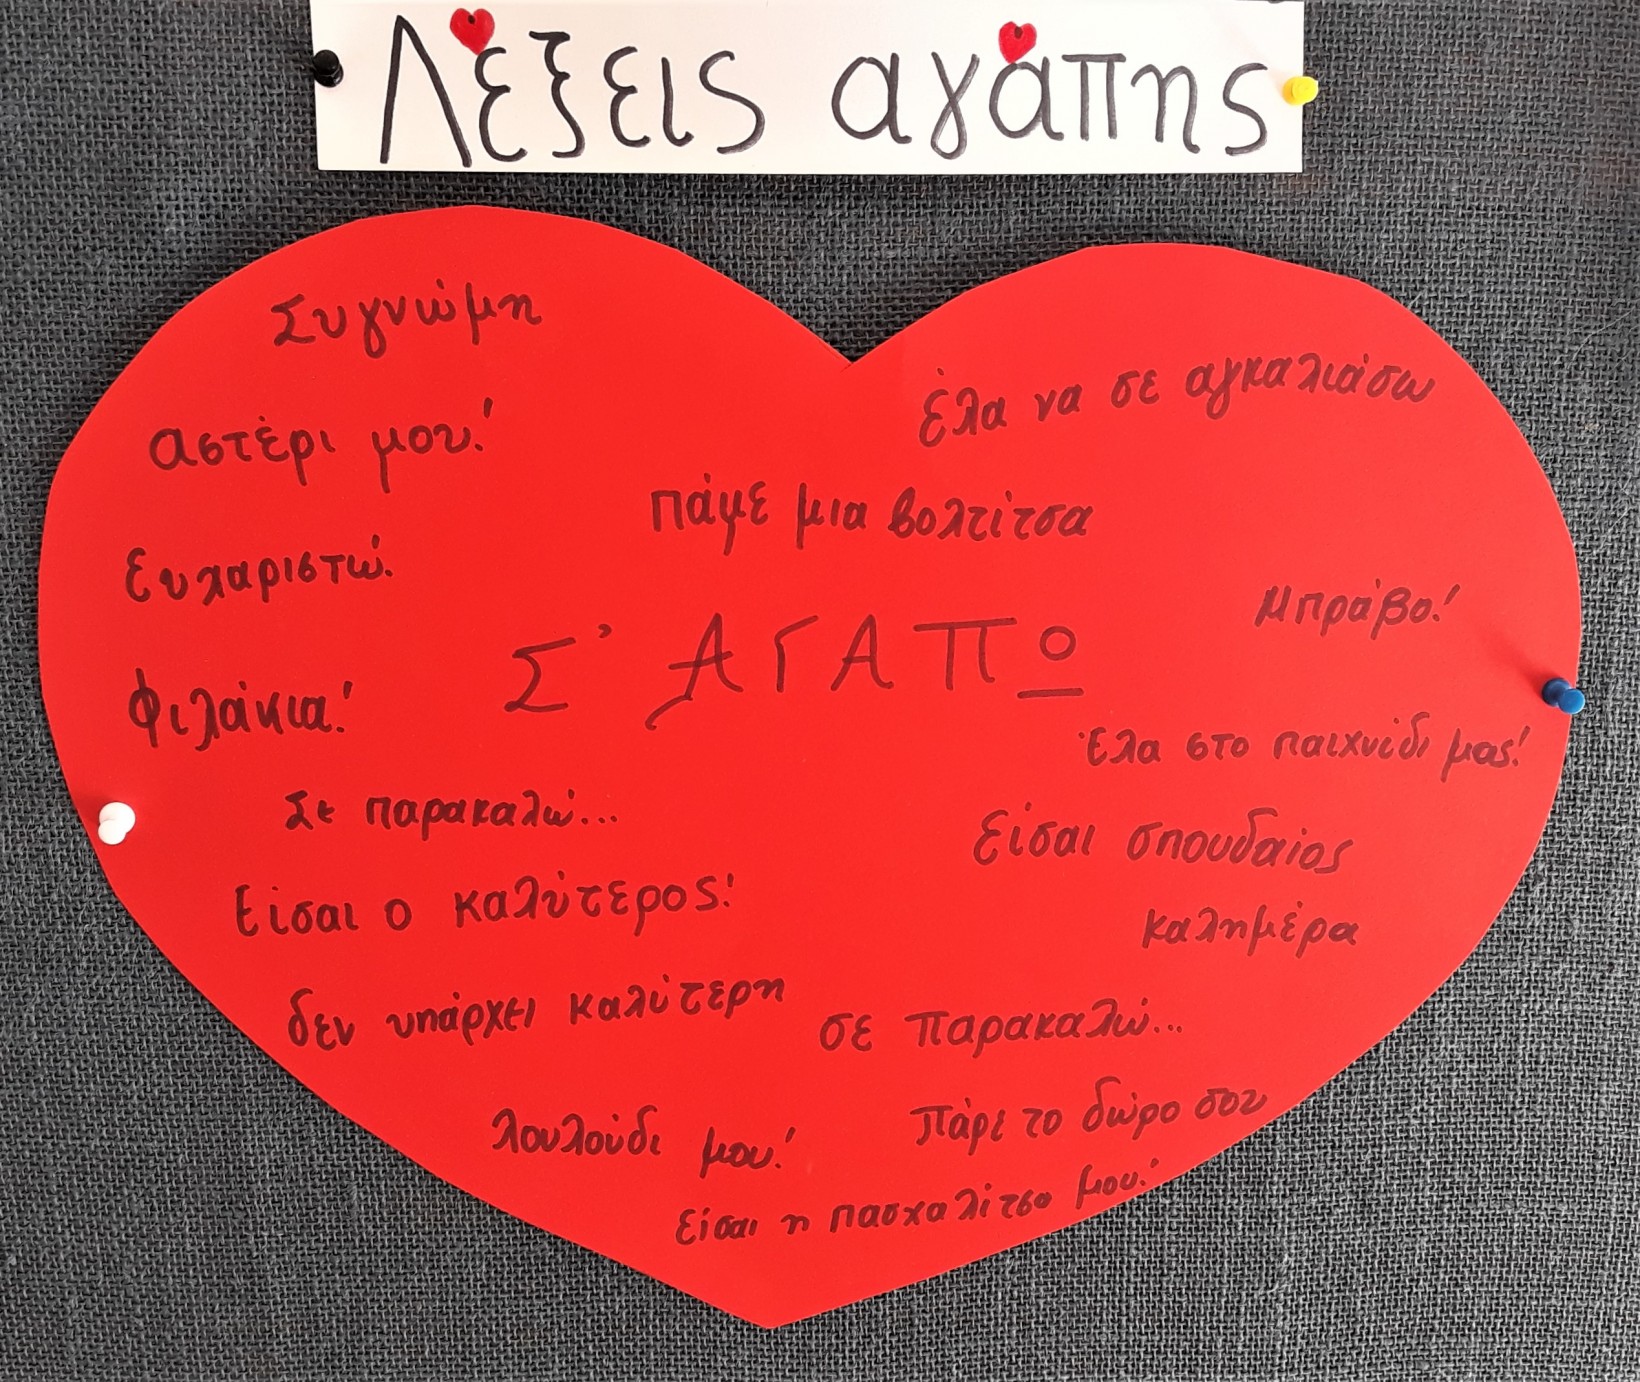 Λέξεις αγάπης
Συγνώμη
έλα να σε αγκαλιάσω
αστέρι μου!
πάμε μια βολτίτσα
Ευχαριστώ!
Μπράβο!
Σ' ΑΓΑΠΩ
Φιλάκια!
Έλα στο παιχνίδι μας!
Σε παρακαλώ...
Είσαι σπουδαίος
Είσαι ο καλύτερος!
καλημέρα
δεν υπάρχει καλύτερη
σε παρακαλώ...
λουλούδι μου!
Πάρε το δώρο σου
είσαι η πασχαλίτσα μου!